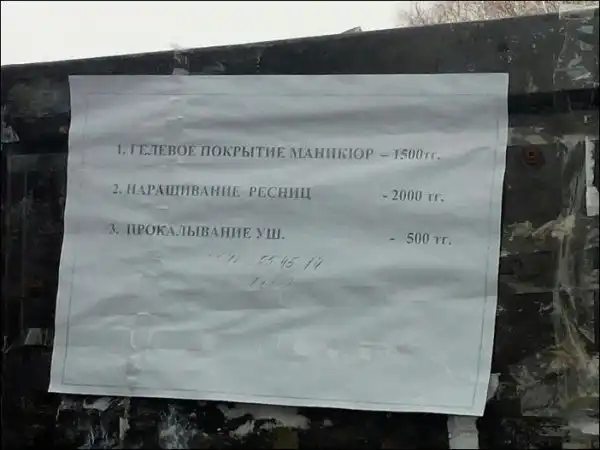 1. ГЕЛЕВОЕ ПОКРЫТИЕ МАНИКЮР – 1500тг.
2. НАРАШИВАНИЕ РЕСНИЦ - 2000 тг.
3. ПРОКАЛЫВАНИЕ УШ. - 500 тг.